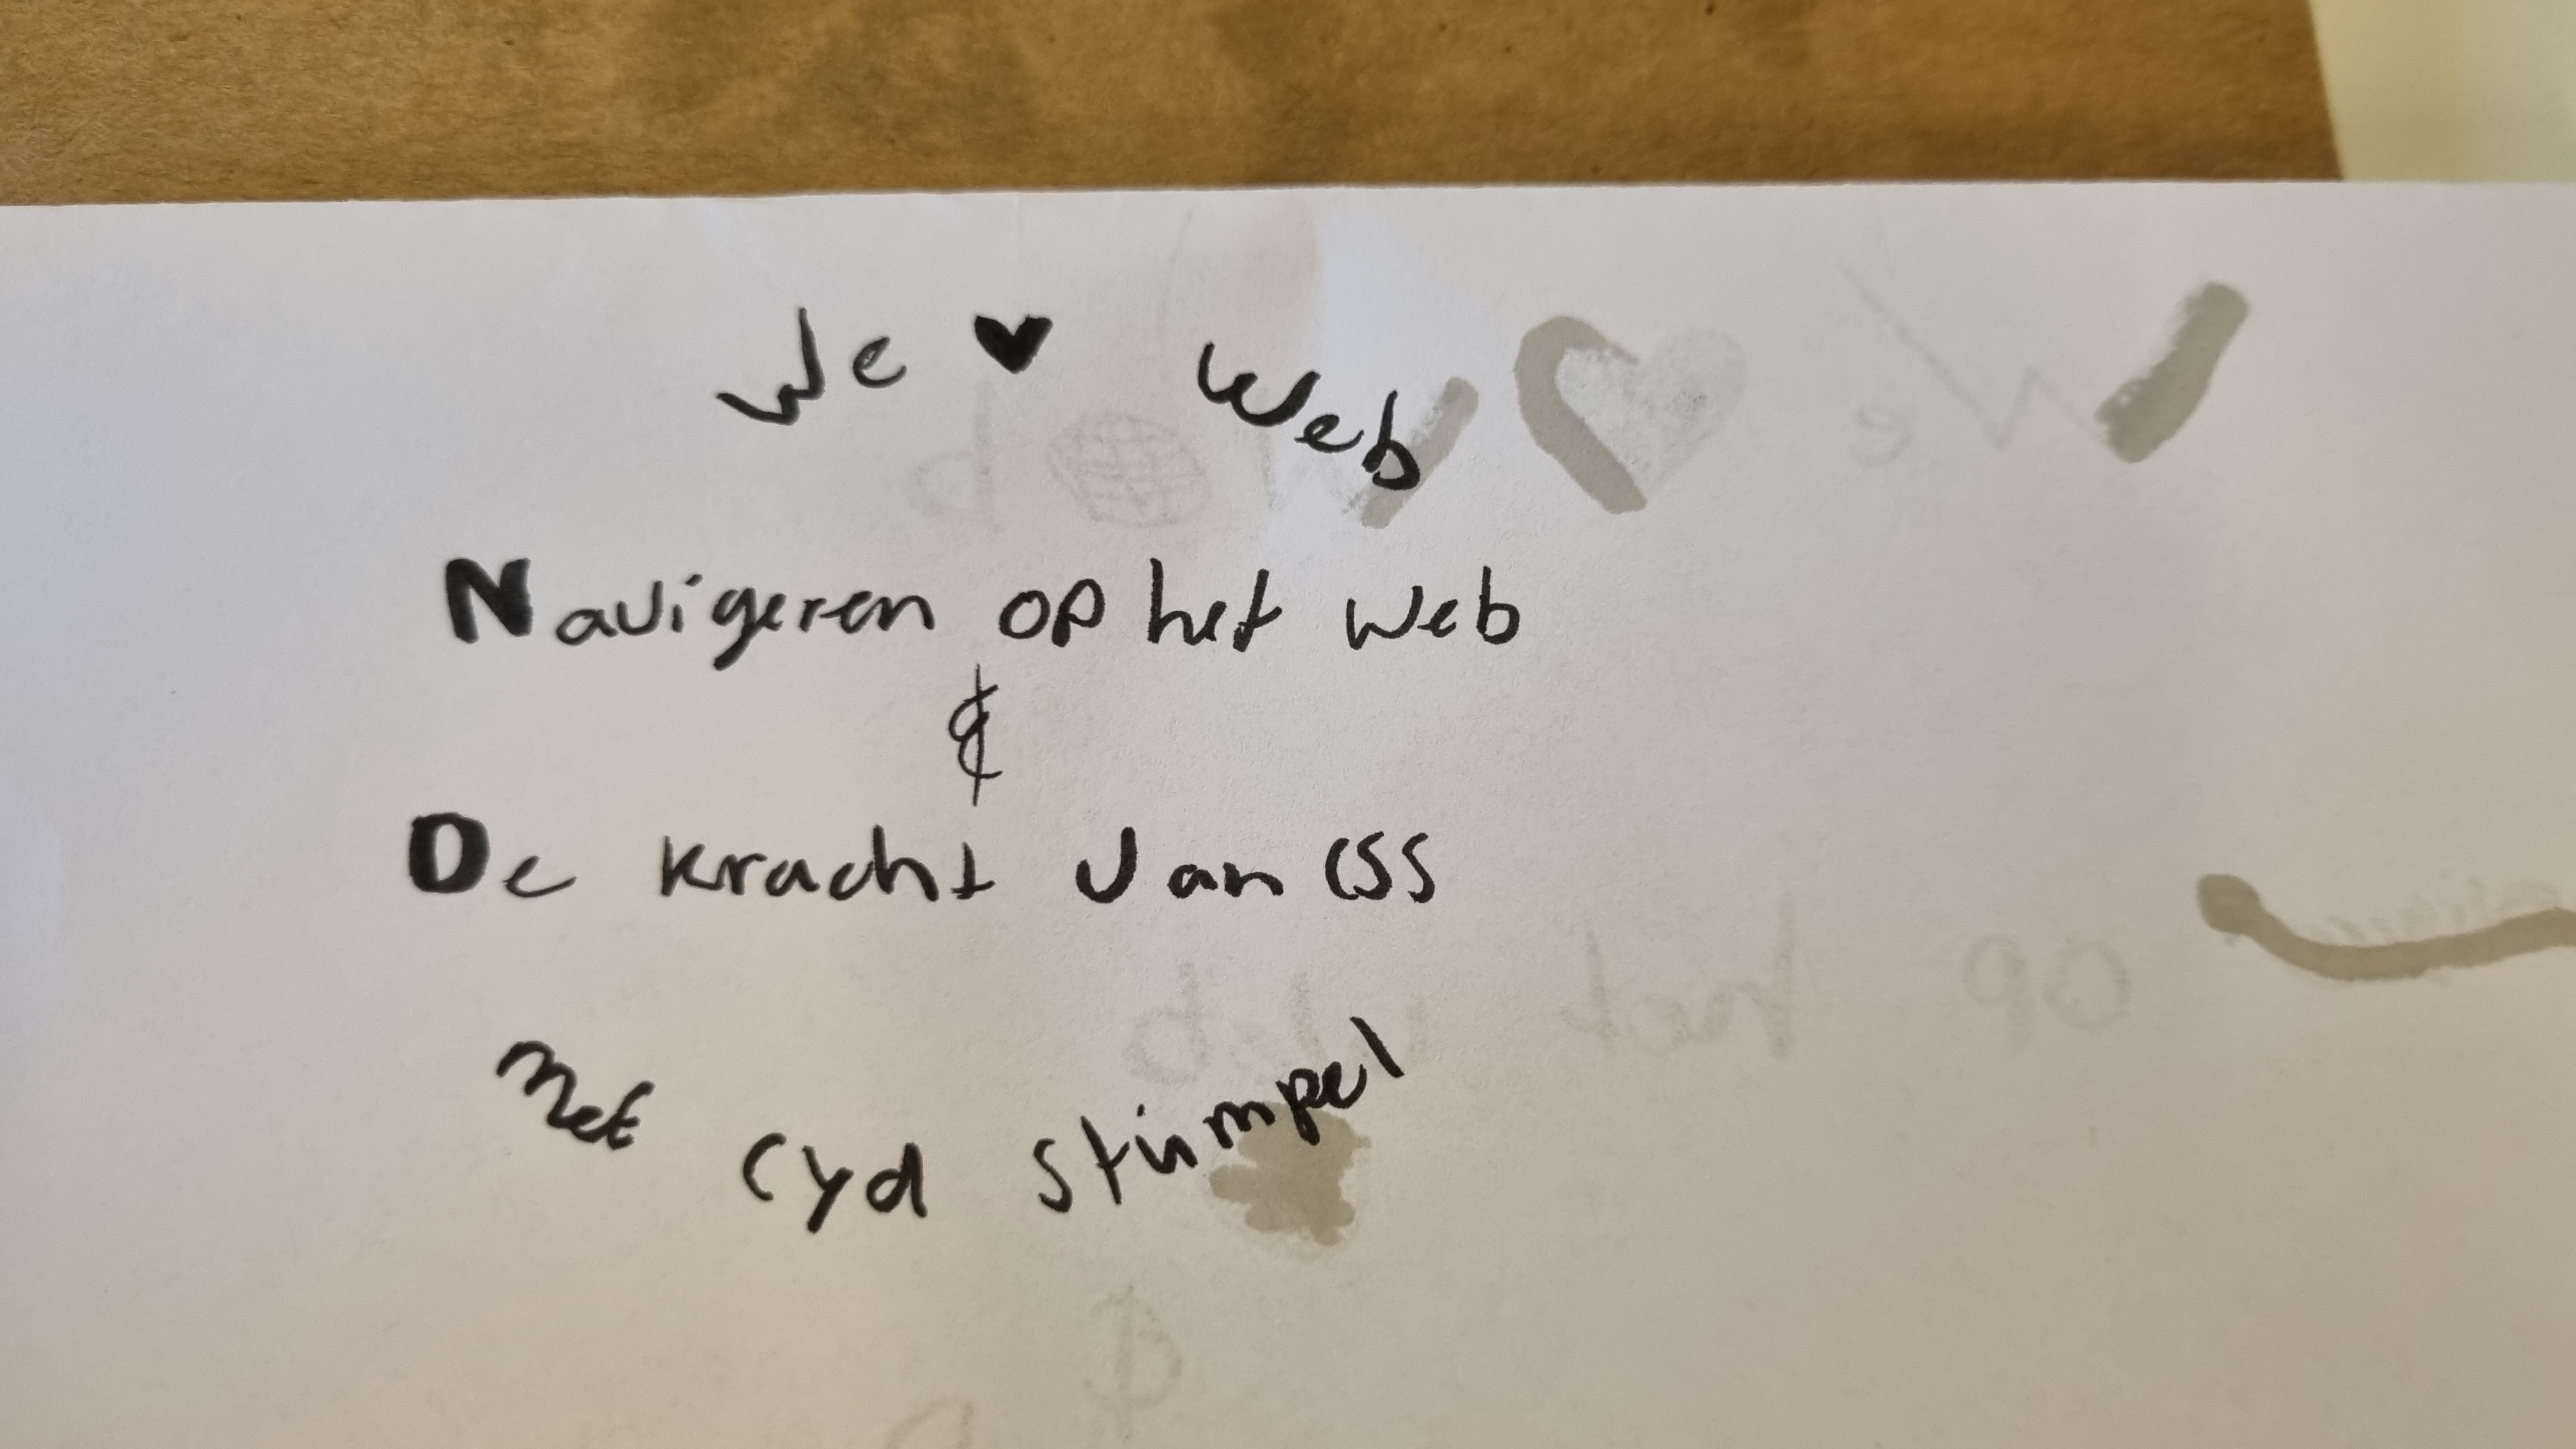 We ♥ Web
Navigeren op het web
&
De kracht van CSS
Met Cyd Stumpel